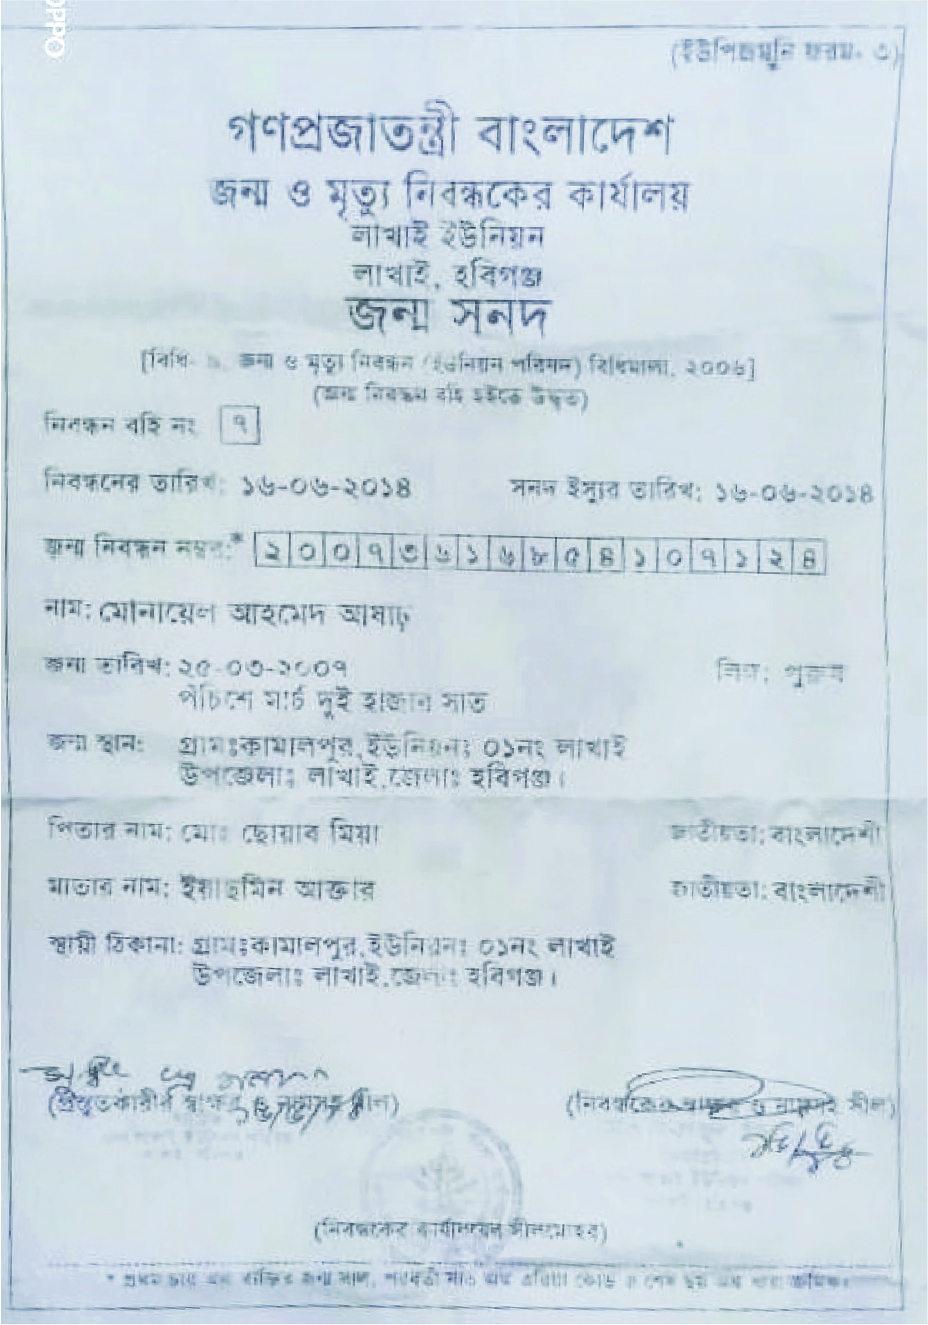 (ইউপিজমুনি ফরম- ৩)
গণপ্রজাতন্ত্রী বাংলাদেশ
জন্ম ও মৃত্যু নিবন্ধকের কার্যালয়
লাখাই ইউনিয়ন
লাখাই, হবিগঞ্জ
জন্ম সনদ
[বিধি- ৯, জন্ম ও মৃত্যু নিবন্ধন (ইউনিয়ন পরিষদ) বিধিমালা, ২০০৬]
(জন্ম নিবন্ধন বহি হইতে উদ্ধৃত)
নিবন্ধন বহি নং ৭
নিবন্ধনের তারিখ: ১৬-০৬-২০১৪ সনদ ইস্যুর তারিখ: ১৬-০৬-২০১৪
জন্ম নিবন্ধন নম্বর:* ২০০৭৩৬১৬৮৫৪১০৭১২৪
নাম: মোনায়েল আহমেদ আষাঢ়
জন্ম তারিখ: ২৫-০৩-২০০৭ লিঙ্গ: পুরুষ
পঁচিশে মার্চ দুই হাজার সাত
জন্ম স্থান: গ্রামঃকামালপুর,ইউনিয়নঃ ০১নং লাখাই
উপজেলাঃ লাখাই,জেলাঃ হবিগঞ্জ।
পিতার নাম: মোঃ ছোয়াব মিয়া জাতীয়তা: বাংলাদেশী
মাতার নাম: ইয়াছমিন আক্তার জাতীয়তা: বাংলাদেশী
স্থায়ী ঠিকানা: গ্রামঃকামালপুর,ইউনিয়নঃ ০১নং লাখাই
উপজেলাঃ লাখাই,জেলাঃ হবিগঞ্জ।
(প্রস্তুতকারীর স্বাক্ষর ও নামসহ সীল) (নিবন্ধকের স্বাক্ষর ও নামসহ সীল)
(নিবন্ধকের কার্যালয়ের সীলমোহর)
* প্রথম চার অংক ব্যক্তির জন্ম সাল, পরবর্তী সাত অংক এরিয়া কোড ও শেষ ছয় অংক ধারা ক্রমিক।